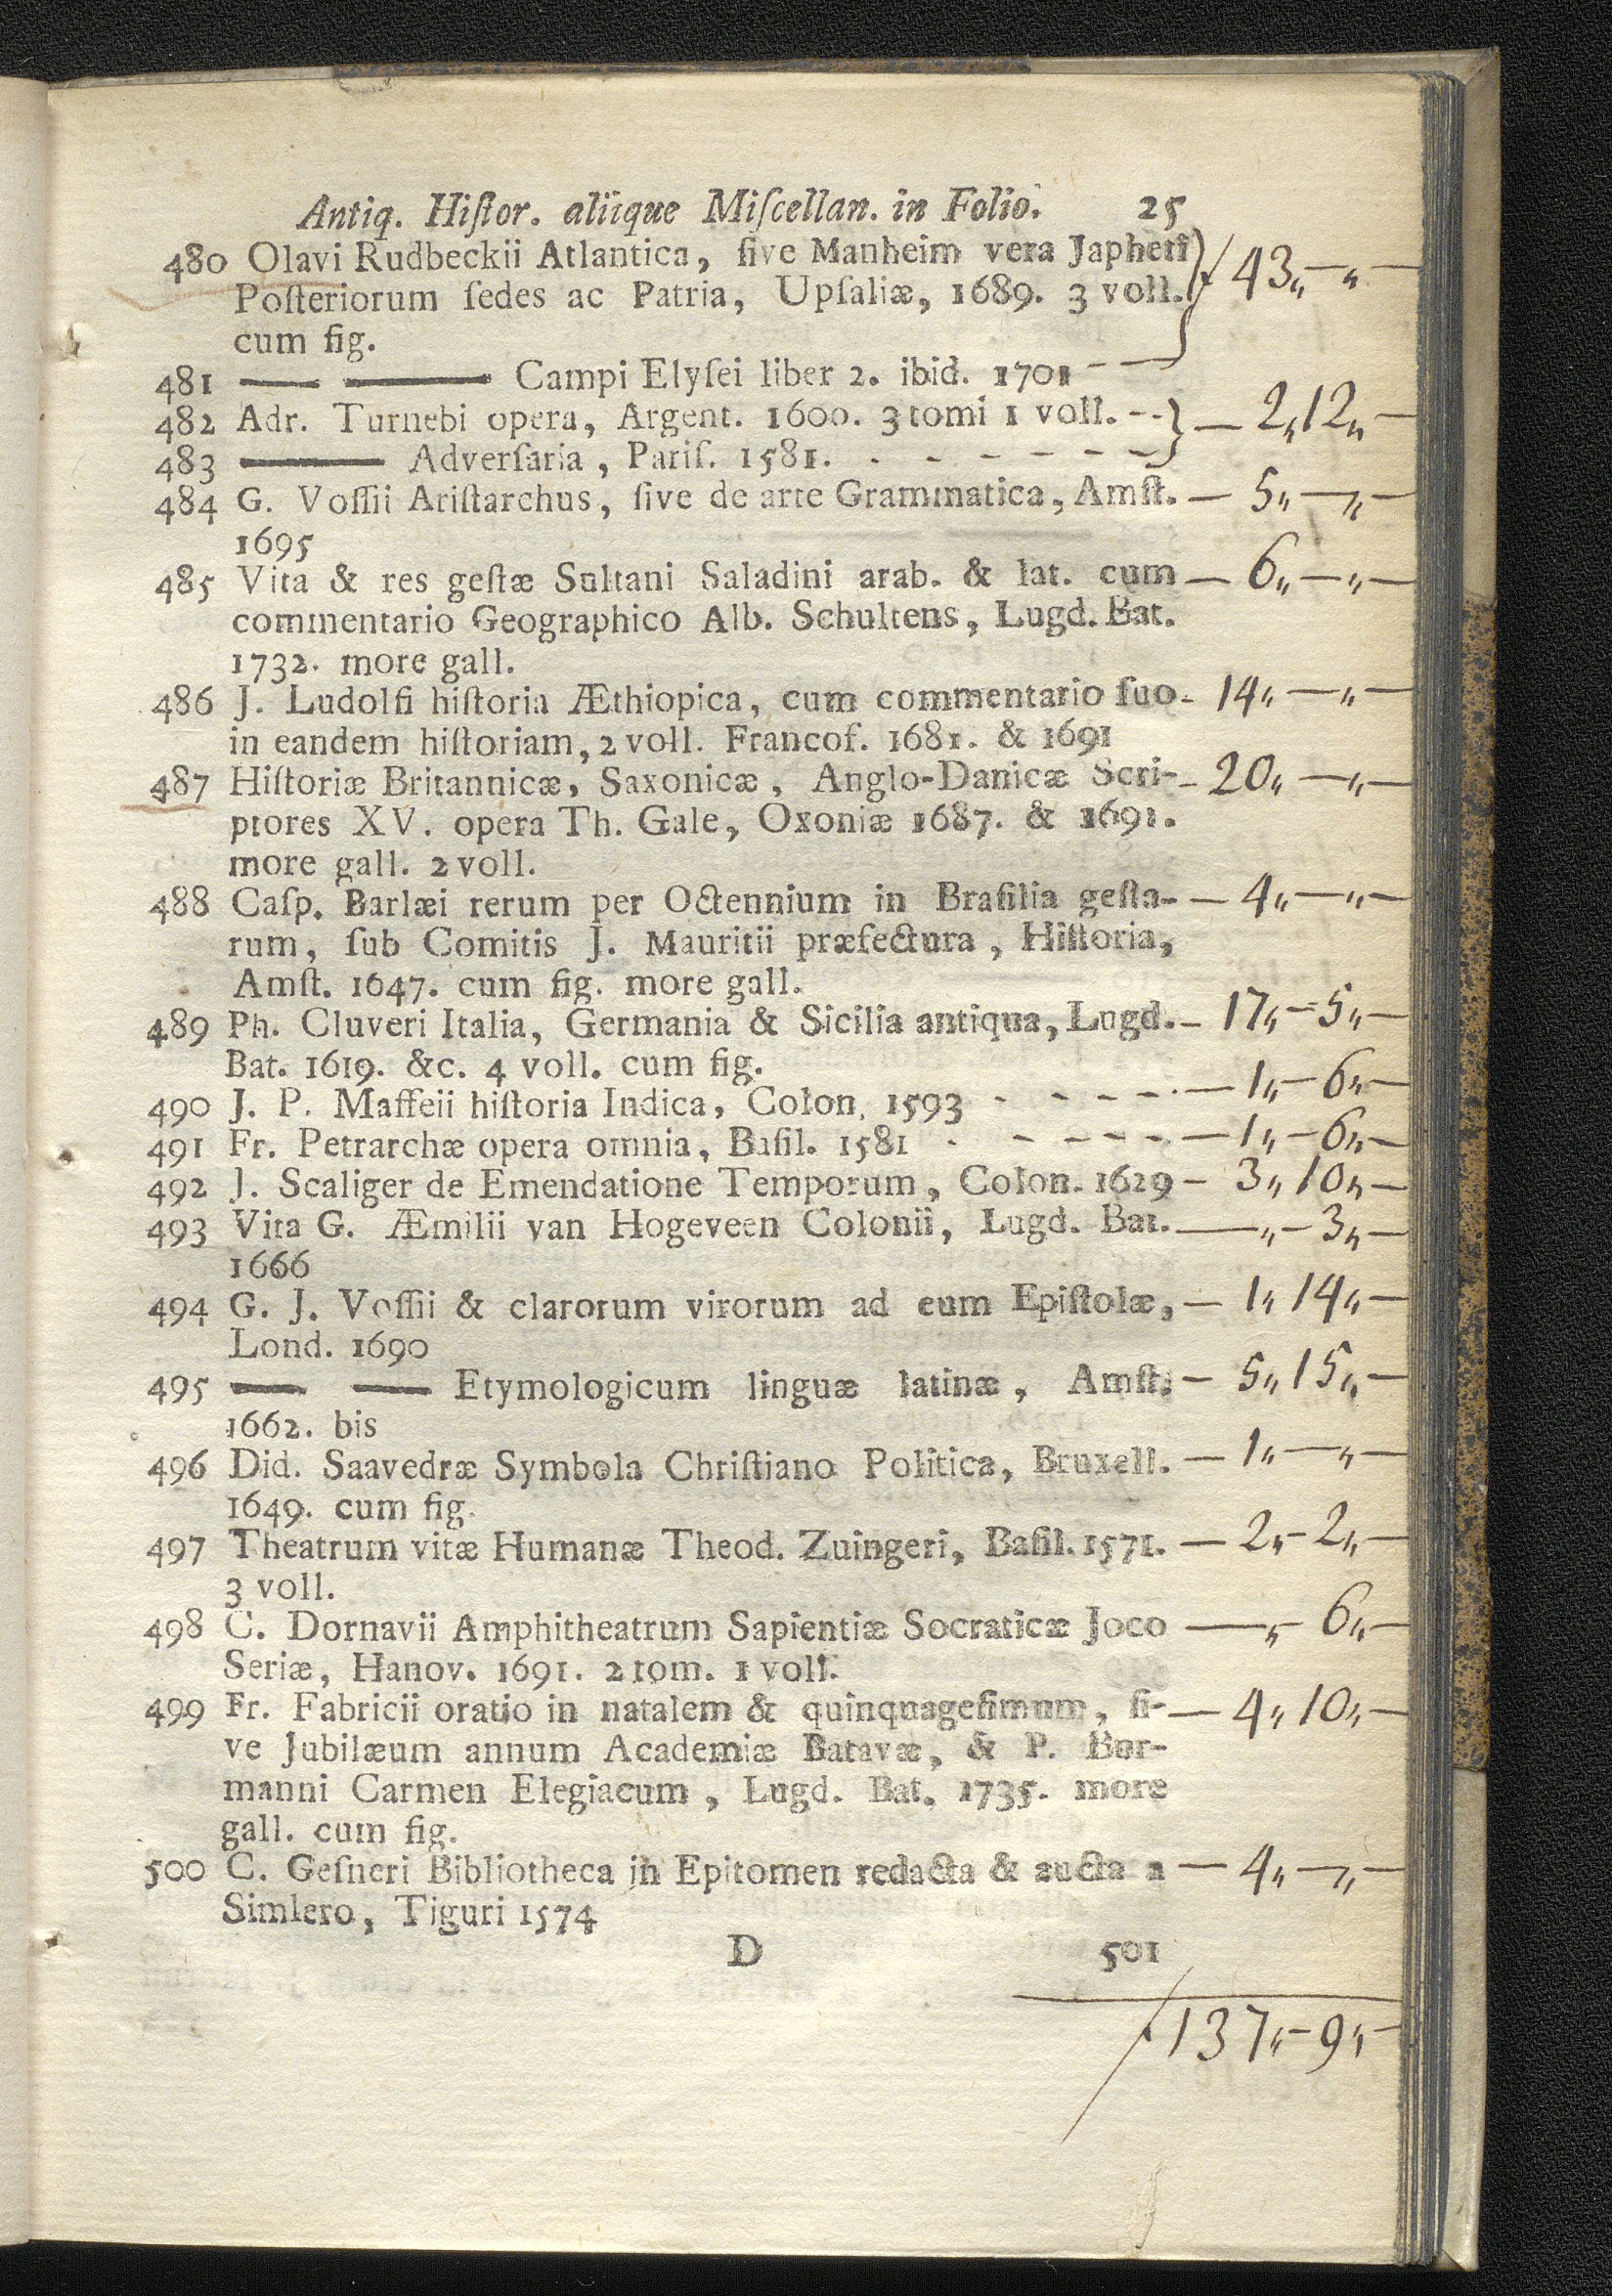 Antiq. Hiſtor. aliique Miſcellan. in Folio. 25
480 Olavi Rudbeckii Atlantica, ſive Manheim vera Japheti } 43,, — ,, —
Poſteriorum ſedes ac Patria, Upſaliæ, 1689. 3 voll.
cum fig.
481 —— —— Campi Elyſei liber 2. ibid. 1701 - —
482 Adr. Turnebi opera, Argent. 1600. 3 tomi 1 voll. - - } — 2,, 12,, —
483 —— Adverſaria, Pariſ. 1581. - - - - - - -
484 G. Voſſii Ariſtarchus, ſive de arte Grammatica, Amſt. — 5,, — ,, —
1695
485 Vita & res geſtæ Sultani Saladini arab. & lat. cum — 6,, — ,, —
commentario Geographico Alb. Schultens, Lugd. Bat.
1732. more gall.
486 J. Ludolfi hiſtoria Æthiopica, cum commentario ſuo - 14,, — ,, —
in eandem hiſtoriam, 2 voll. Francof. 1681. & 1691
487 Hiſtoriæ Britannicæ, Saxonicæ, Anglo-Danicæ Scri- - 20,, — ,, —
ptores XV. opera Th. Gale, Oxoniæ 1687. & 1691.
more gall. 2 voll.
488 Caſp. Barlæi rerum per Octennium in Braſilia geſta- — 4,, — ,, —
rum, ſub Comitis J. Mauritii præfectura, Hiſtoria,
Amſt. 1647. cum fig. more gall.
489 Ph. Cluveri Italia, Germania & Sicilia antiqua, Lugd. - 17,, = 5,, —
Bat. 1619. &c. 4 voll. cum fig.
490 J. P. Maffeii hiſtoria Indica, Colon. 1593 - - - - - — 1,, — 6,, —
491 Fr. Petrarchæ opera omnia, Baſil. 1581 - - - - - — 1,, — 6,, —
492 J. Scaliger de Emendatione Temporum, Colon. 1629 - 3,, 10,, —
493 Vita G. Æmilii van Hogeveen Colonii, Lugd. Bat. — ,, — 3,, —
1666
494 G. J. Voſſii & clarorum virorum ad eum Epiſtolæ, — 1,, 14,, —
Lond. 1690
495 —— —— Etymologicum linguæ latinæ, Amſt. — 5,, 15,, —
1662. bis
496 Did. Saavedræ Symbola Chriſtiano Politica, Bruxell. — 1,, — ,, —
1649. cum fig.
497 Theatrum vitæ Humanæ Theod. Zuingeri, Baſil. 1571. — 2,, — 2,, —
3 voll.
498 C. Dornavii Amphitheatrum Sapientiæ Socraticæ Joco — ,, — 6,, —
Seriæ, Hanov. 1691. 2 tom. 1 voll.
499 Fr. Fabricii oratio in natalem & quinquageſimum, ſi- — 4,, 10,, —
ve Jubilæum annum Academiæ Batavæ, & P. Bur-
manni Carmen Elegiacum, Lugd. Bat. 1735. more
gall. cum fig.
500 C. Geſneri Bibliotheca in Epitomen redacta & aucta a — 4,, — ,, —
Simlero, Tiguri 1574
D 501
137,, — 9,, —